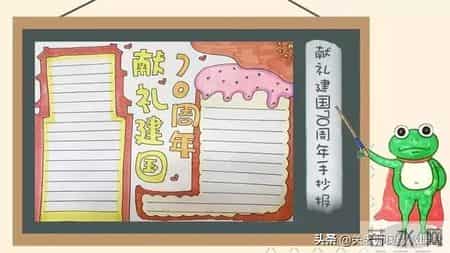 献礼建国
70周年
献礼建国70周年手抄报
头条